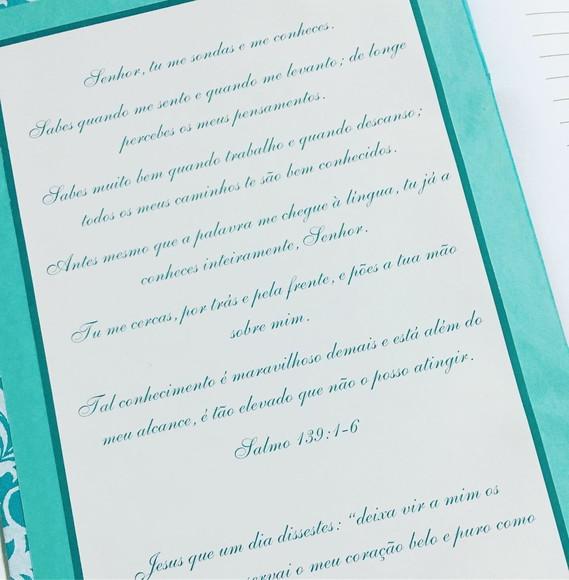 Senhor, tu me sondas e me conheces.
Sabes quando me sento e quando me levanto; de longe
percebes os meus pensamentos.
Sabes muito bem quando trabalho e quando descanso;
todos os meus caminhos te são bem conhecidos.
Antes mesmo que a palavra me chegue à língua, tu já a
conheces inteiramente, Senhor.
Tu me cercas, por trás e pela frente, e pões a tua mão
sobre mim.
Tal conhecimento é maravilhoso demais e está além do
meu alcance, é tão elevado que não o posso atingir.
Salmo 139:1-6
Jesus que um dia dissestes: "deixa vir a mim os
o meu coração belo e puro como